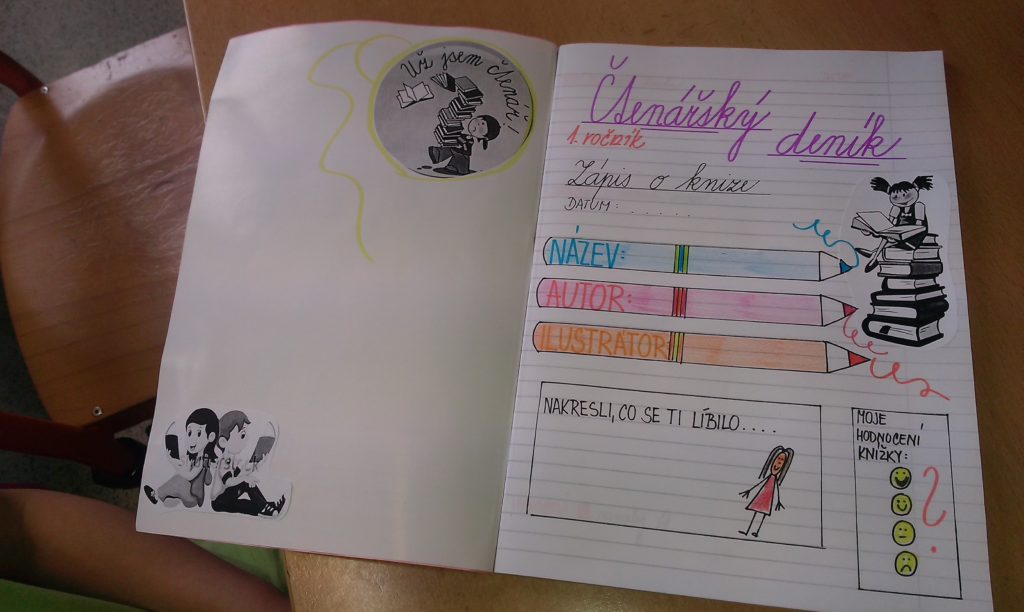 Už jsem čtenář!
Čtenářský deník
1. ročník
Zápis o knize
DATUM: . . . . . .
NÁZEV:
AUTOR:
ILUSTRÁTOR
NAKRESLI, CO SE TI LÍBILO....
MOJE
HODNOCENÍ
KNÍŽKY:
?